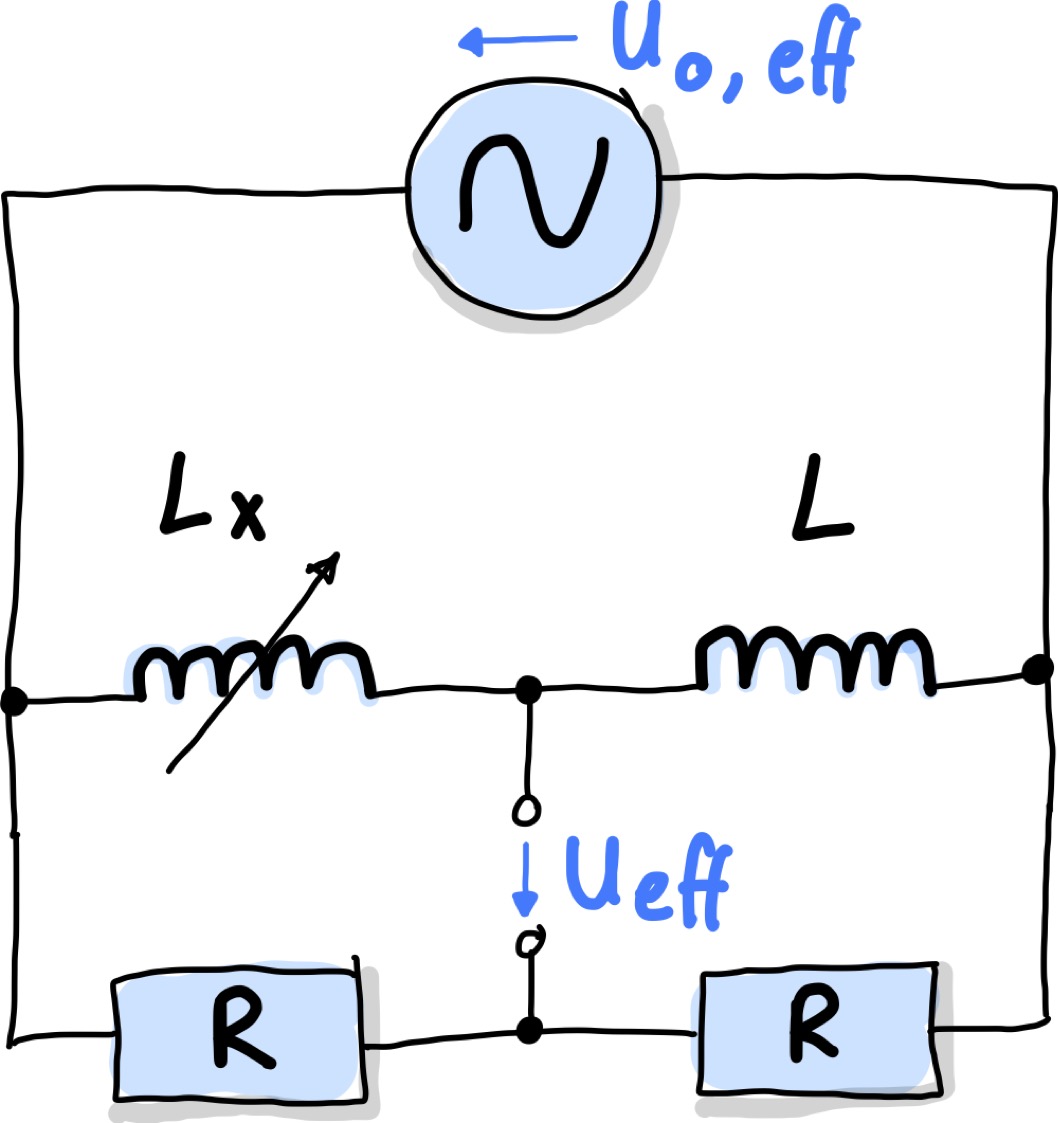 U₀,eff
Lx
L
Ueff
R
R